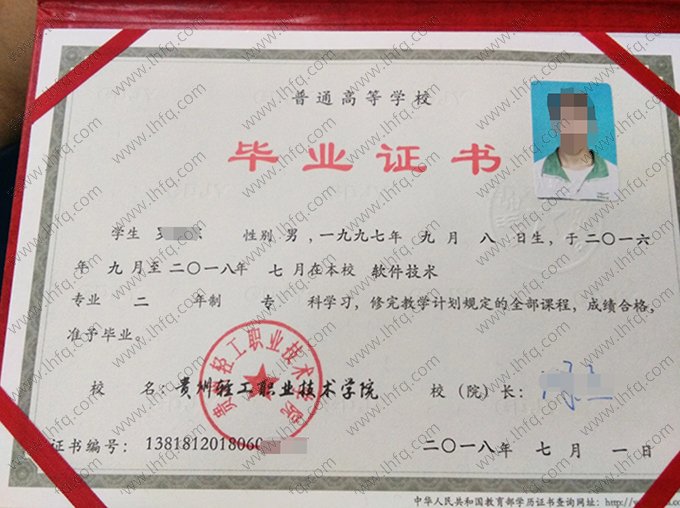 普通高等学校
毕业证书
学生 性别 男，一九九七年 九 月 八 日生，于二〇一六
年 九 月至二〇一八年 七 月在本校 软件技术
专业 二 年制 专 科学习，修完教学计划规定的全部课程，成绩合格，
准予毕业。
校 名：贵州轻工职业技术学院 校（院）长：
贵州轻工职业技术学院
证书编号：1381812018060
二〇一八年 七 月 一 日
中华人民共和国教育部学历证书查询网址：http://
www.lhfq.com